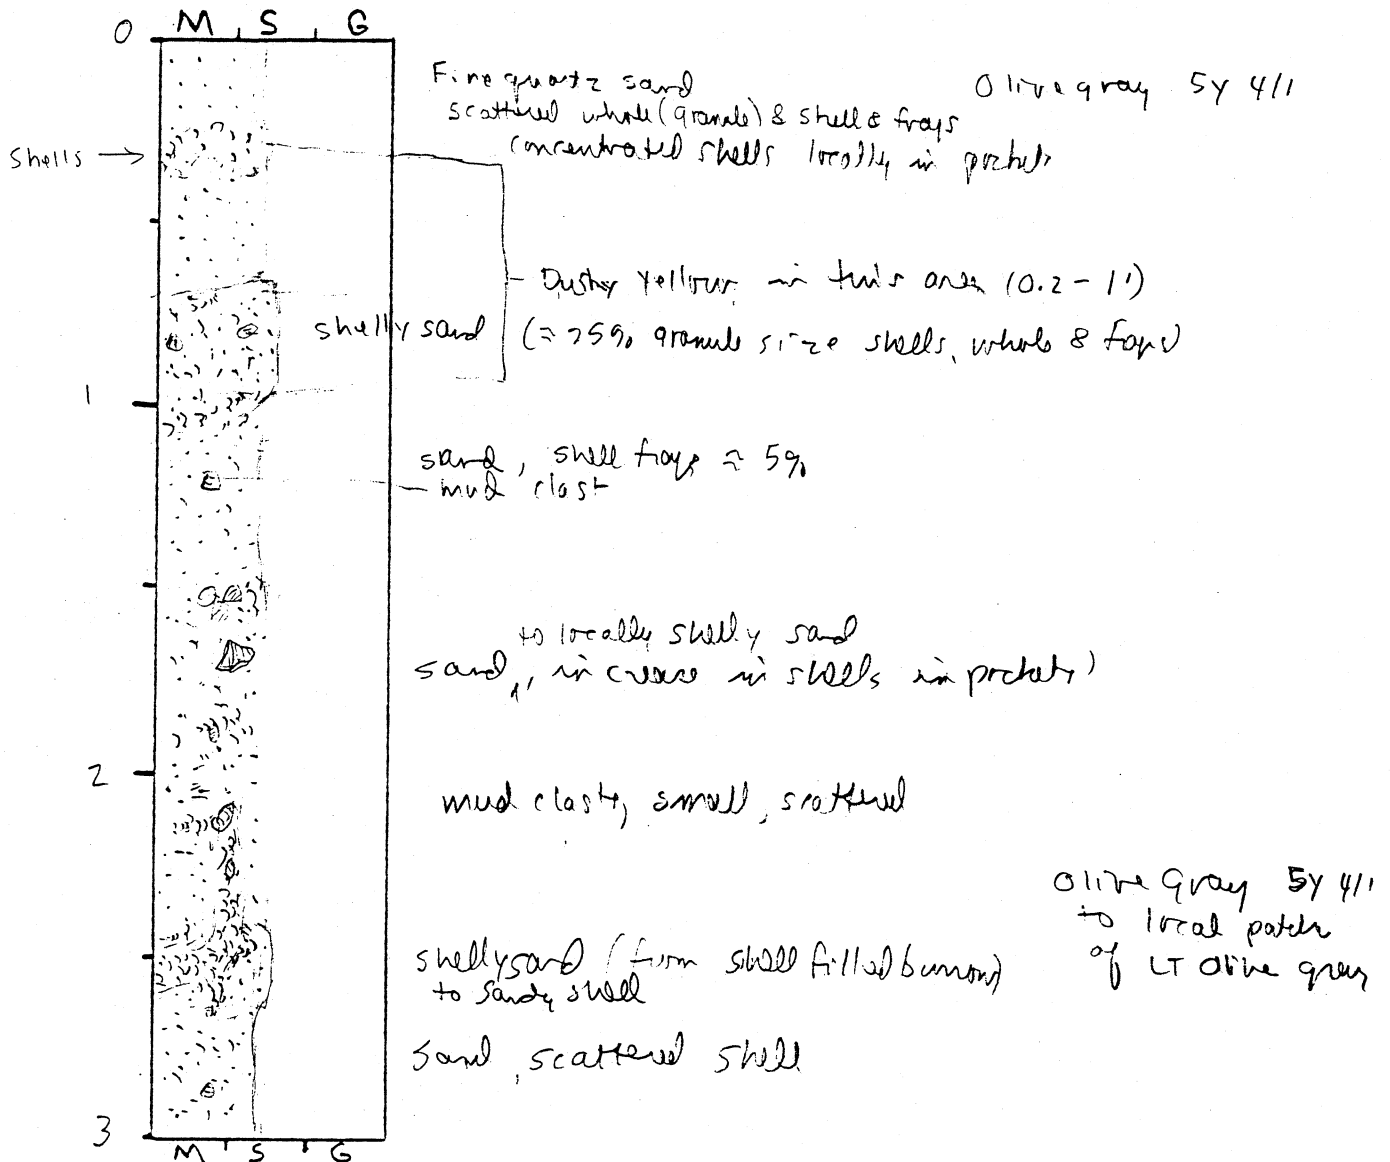 0 M S G
Fine quartz sand
Olive gray 5Y 4/1
scattered whole (granule) & shell & frags
concentrated shells locally in pockets
Shells →
Dusky Yellow in this area (0.2 - 1')
shelly sand (≈ 25% granule size shells, whole & frags)
1
sand, shell frags ≈ 5%
mud clast
to locally shelly sand
sand, increase in shells in pockets)
2
mud clasts, small, scattered
Olive Gray 5Y 4/1
to local patches
of LT Olive gray
shelly sand (from shell filled burrows)
to sandy shell
sand, scattered shell
3
M S G